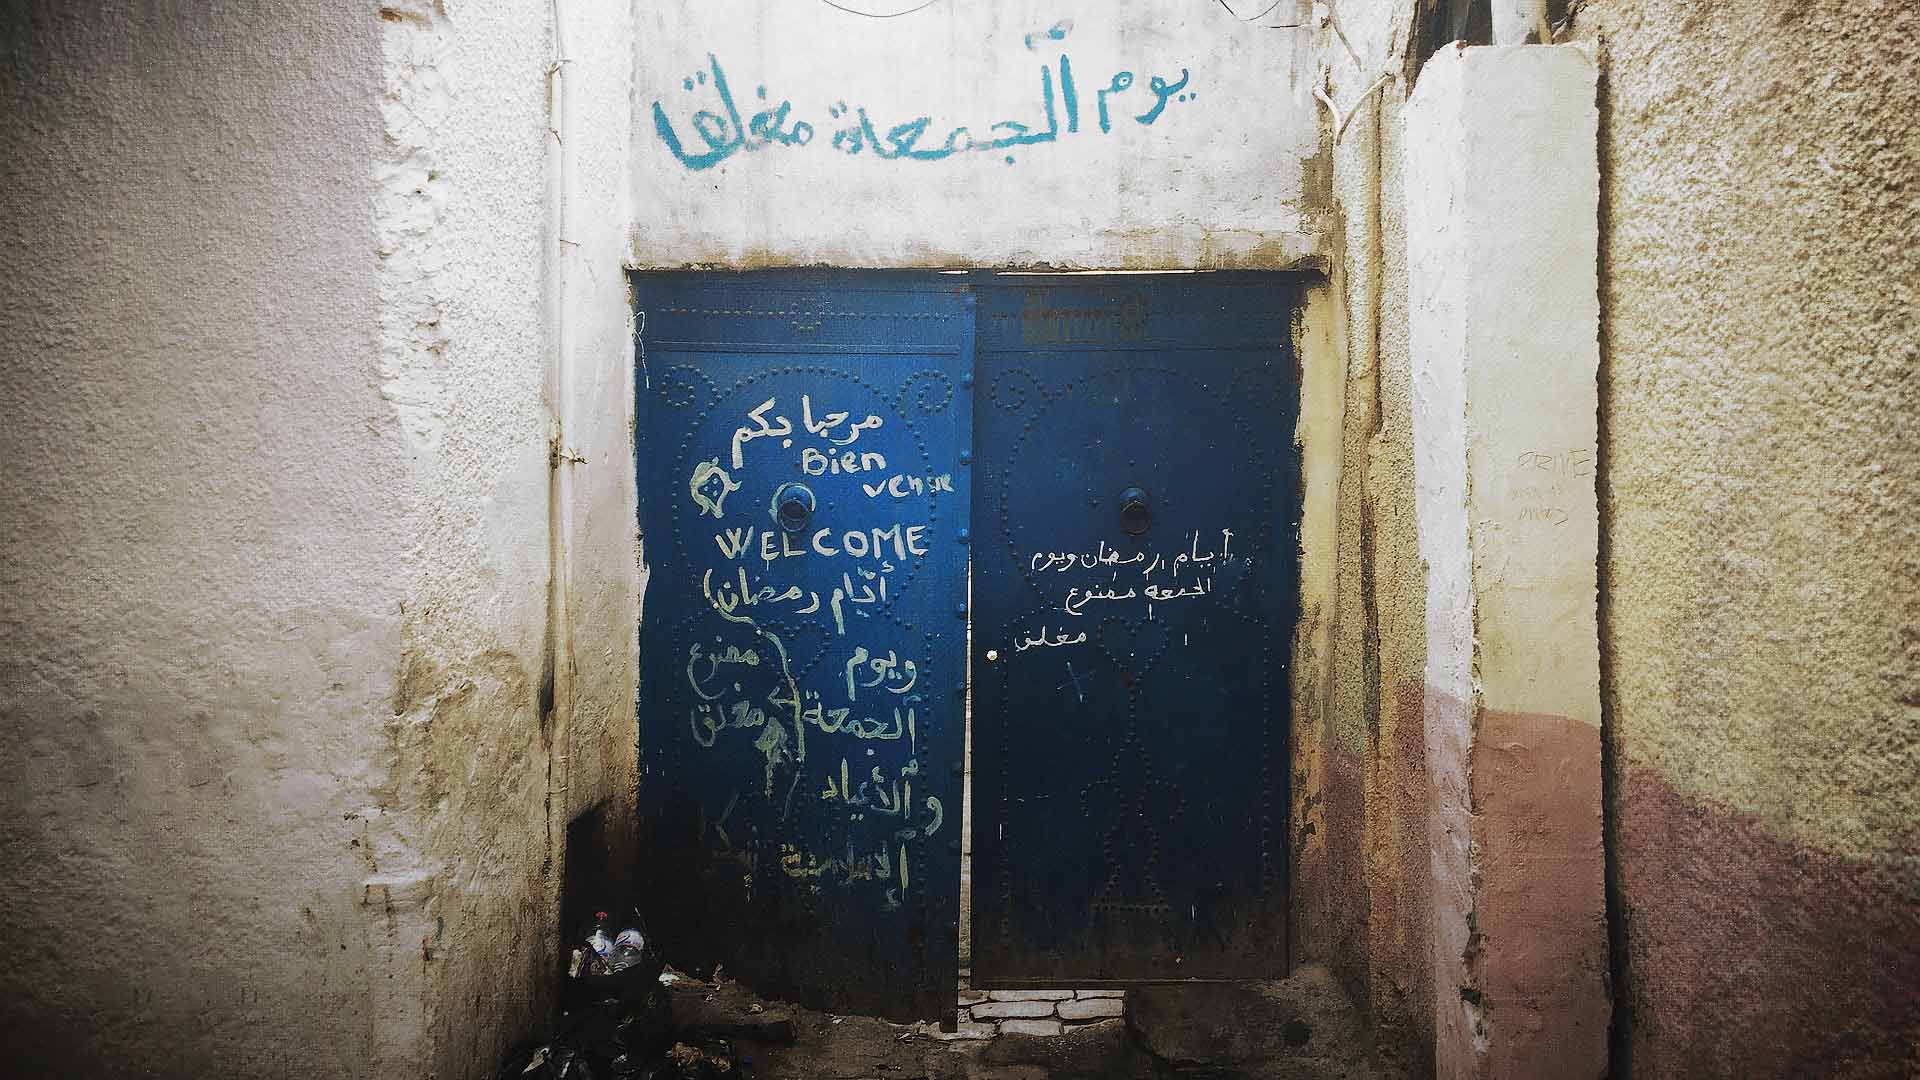 يوم الجمعة مغلقا
مرحبا بكم
Bien
venue
WELCOME
أيام رمضان
ويوم ممنوع
الجمعة مغلق
و الأعياد
الإسلامية
أيام رمضان ويوم
الجمعة ممنوع
مغلق
PRIVE